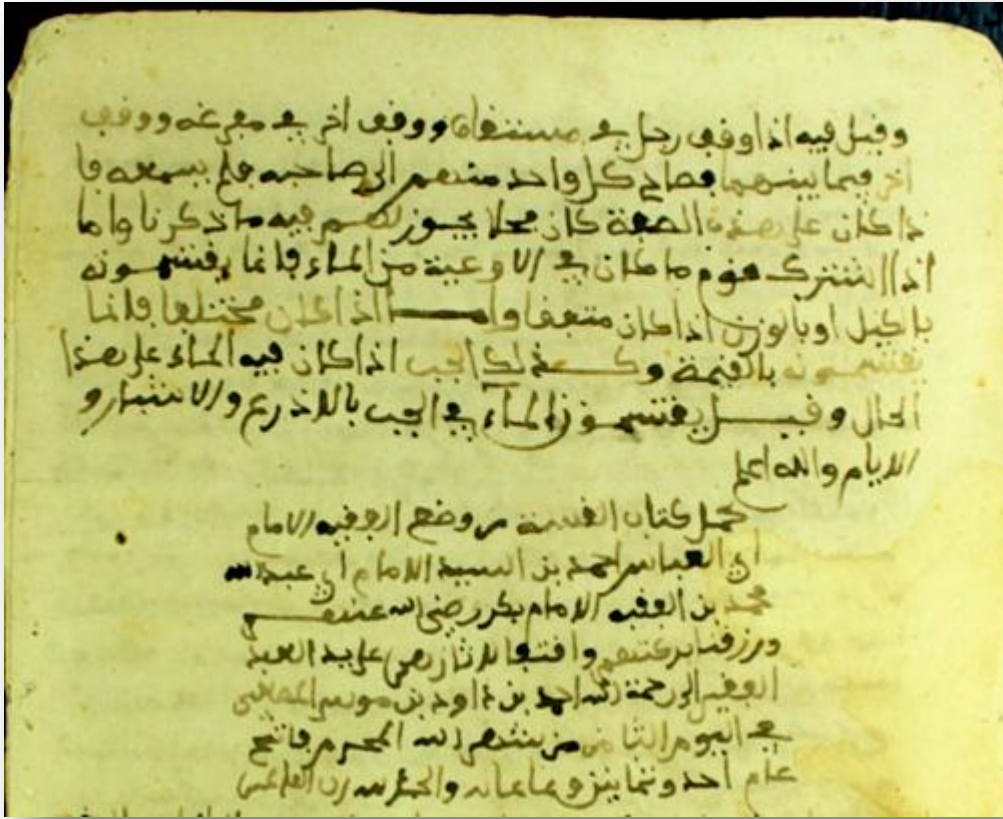 وقيل فيه اذا وقف رجل في مستقاة ووقف اخر في مفرغه ووقف
اخر فيما بينهما فصاح كل واحد منهم الى صاحبه فلم يسمعه فا
ذا كان على هذه الصفة كان محلا يجوز لهم فيه ما ذكرنا واما
اذا اشترك قوم ما كان في الاوعية من الماء فانما يقتسمونه
بالكيل او بالوزن اذا كان متفقا واما اذا كان مختلفا فانما
يقتسمونه بالقيمة وكذلك الجب اذا كان فيه الماء على هذا
الحال وقيل يقتسمون الماء في الجب بالاذرع والاشبار و
الايام والله اعلم
كمل كتاب القسمة من وضع الفقيه الامام
ابي العباس احمد بن السيد الامام ابي عبد الله
محمد بن الفقيه الامام بكر رضي الله عنهم
ورزقنا بركتهم واقتفا لاثارهم على يد العبد
الفقير الى رحمة الله احمد بن داود بن موسى
في اليوم الثامن من شهر الله المحرم فاتح
عام احد وثمانين والحمد لله رب العالمين